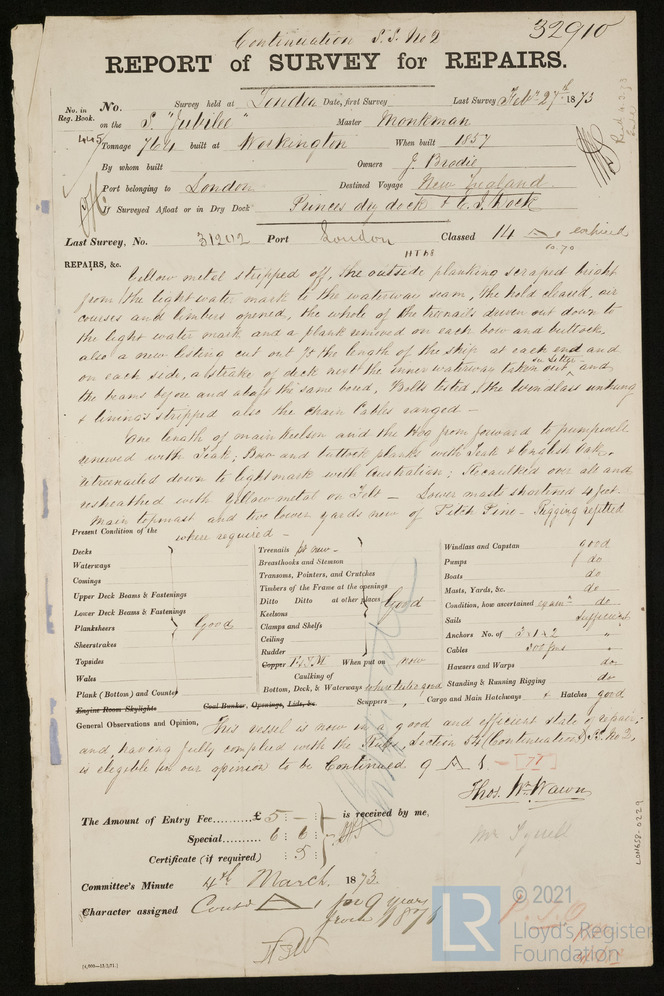 32910
Continuation S.S. No 2
REPORT of SURVEY for REPAIRS.
No. in Reg. Book. No. Survey held at London Date, first Survey Last Survey Feby 27th 1873
445 on the S. "Jubilee" Master Monkman
Tonnage 764 built at Workington When built 1857
By whom built Owners J. Brodie
Port belonging to London Destined Voyage New Zealand
If Surveyed Afloat or in Dry Dock Princes dry dock & E. I. Dock
Last Survey, No. 31202 Port London Classed 14 A 1 expired
10.70
HT&S
REPAIRS, &c.
Yellow metal stripped off, the outside planking scraped bright
from the light water mark to the waterway seam, the hold cleared, air
courses and limbers opened, the whole of the treenails driven out down to
the light water mark and a plank removed on each bow and buttock,
also a new listing cut out to the length of the ship at each end and
on each side, a strake of deck next the inner waterway taken out, and
the beams before and abaft the same bored, Bolts tested, the windlass unhung
& linings stripped also the chain Cables ranged —
One length of main keelson and the Hog from forward to pumpwell
renewed with Teak; Bow and buttock planks with Teak & English Oak,
retreenailed down to lightmark with Australian; Recaulked over all and
resheathed with Yellow metal on Felt — Lower masts shortened 4 feet.
Main topmast and two lower yards new of Pitch Pine — Rigging refitted
where required —
Present Condition of the
Decks
Waterways
Comings
Upper Deck Beams & Fastenings
Lower Deck Beams & Fastenings
Planksheers
Sheerstrakes
Topsides
Wales
Plank (Bottom) and Counter
Good
Engine Room Skylights
Coal Bunker, Openings, Lids, &c.
Treenails pt new —
Breasthooks and Stemson
Transoms, Pointers, and Crutches
Timbers of the Frame at the openings
Ditto Ditto at other places
Keelsons
Clamps and Shelfs
Ceiling
Rudder
Good
Copper F&YM When put on now
Caulking of
Bottom, Deck, & Waterways good
Scuppers
Windlass and Capstan good
Pumps do
Boats do
Masts, Yards, &c. do
Condition, how ascertained do
Sails sufficient
Anchors No. of 3 & 1 & 2 "
Cables 300 fms "
Hawsers and Warps do
Standing & Running Rigging do
Cargo and Main Hatchways & Hatches good
General Observations and Opinion, This vessel is now in a good and efficient state of repair;
and having fully complied with the Rules, Section 54 (Continuation) S. No 2,
is eligible in our opinion to be Continued 9 A 1 —
Thos. Wm. Wawn
Mr Tyrrell
The Amount of Entry Fee £ 5 : — : is received by me,
Special 6 : 6 :
Certificate (if required) : 5 :
Committee's Minute 4th March 1873
Character assigned Contd A 1 for 9 years
from 1871
[4,000—13.2.71.]
LON658-0229
LR
© 2021
Lloyd's Register
Foundation